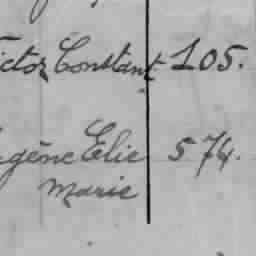 ictor Constant 105.
ugène Elie 574.
Marie